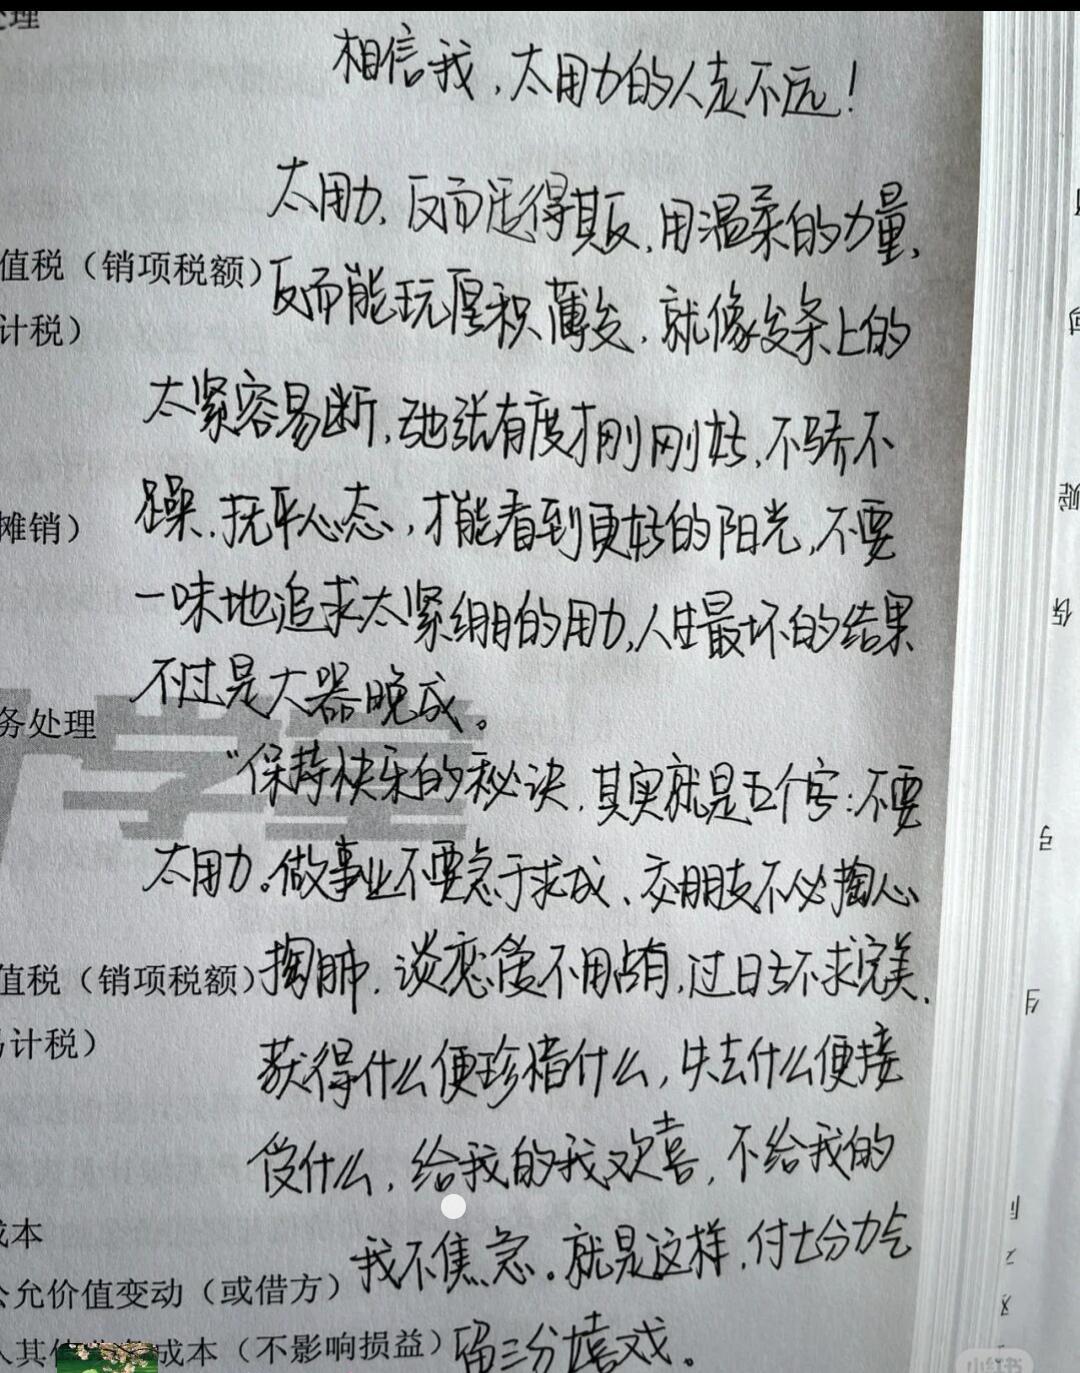 处理
相信我,太用力的人走不远!
太用力,反而适得其反,用温柔的力量,
值税(销项税额)
反而能玩厚积薄发,就像发条上的
计税)
太紧容易断,弛张有度才刚刚好,不骄不
躁,抚平心态,才能看到更好的阳光,不要
摊销)
一味地追求太紧绷的用力,人生最坏的结果
不过是大器晚成。
务处理
学堂
“保持快乐的秘诀,其实就是五个字:不要
太用力。做事业不要急于求成、交朋友不必掏心
值税(销项税额)
掏肺,谈恋爱不用占有,过日子不求完美,
计税)
获得什么便珍惜什么,失去什么便接
受什么,给我的我欢喜,不给我的
成本
我不焦急。就是这样,付七分力气
公允价值变动(或借方)
留三分嬉戏。
成本(不影响损益)
小红书